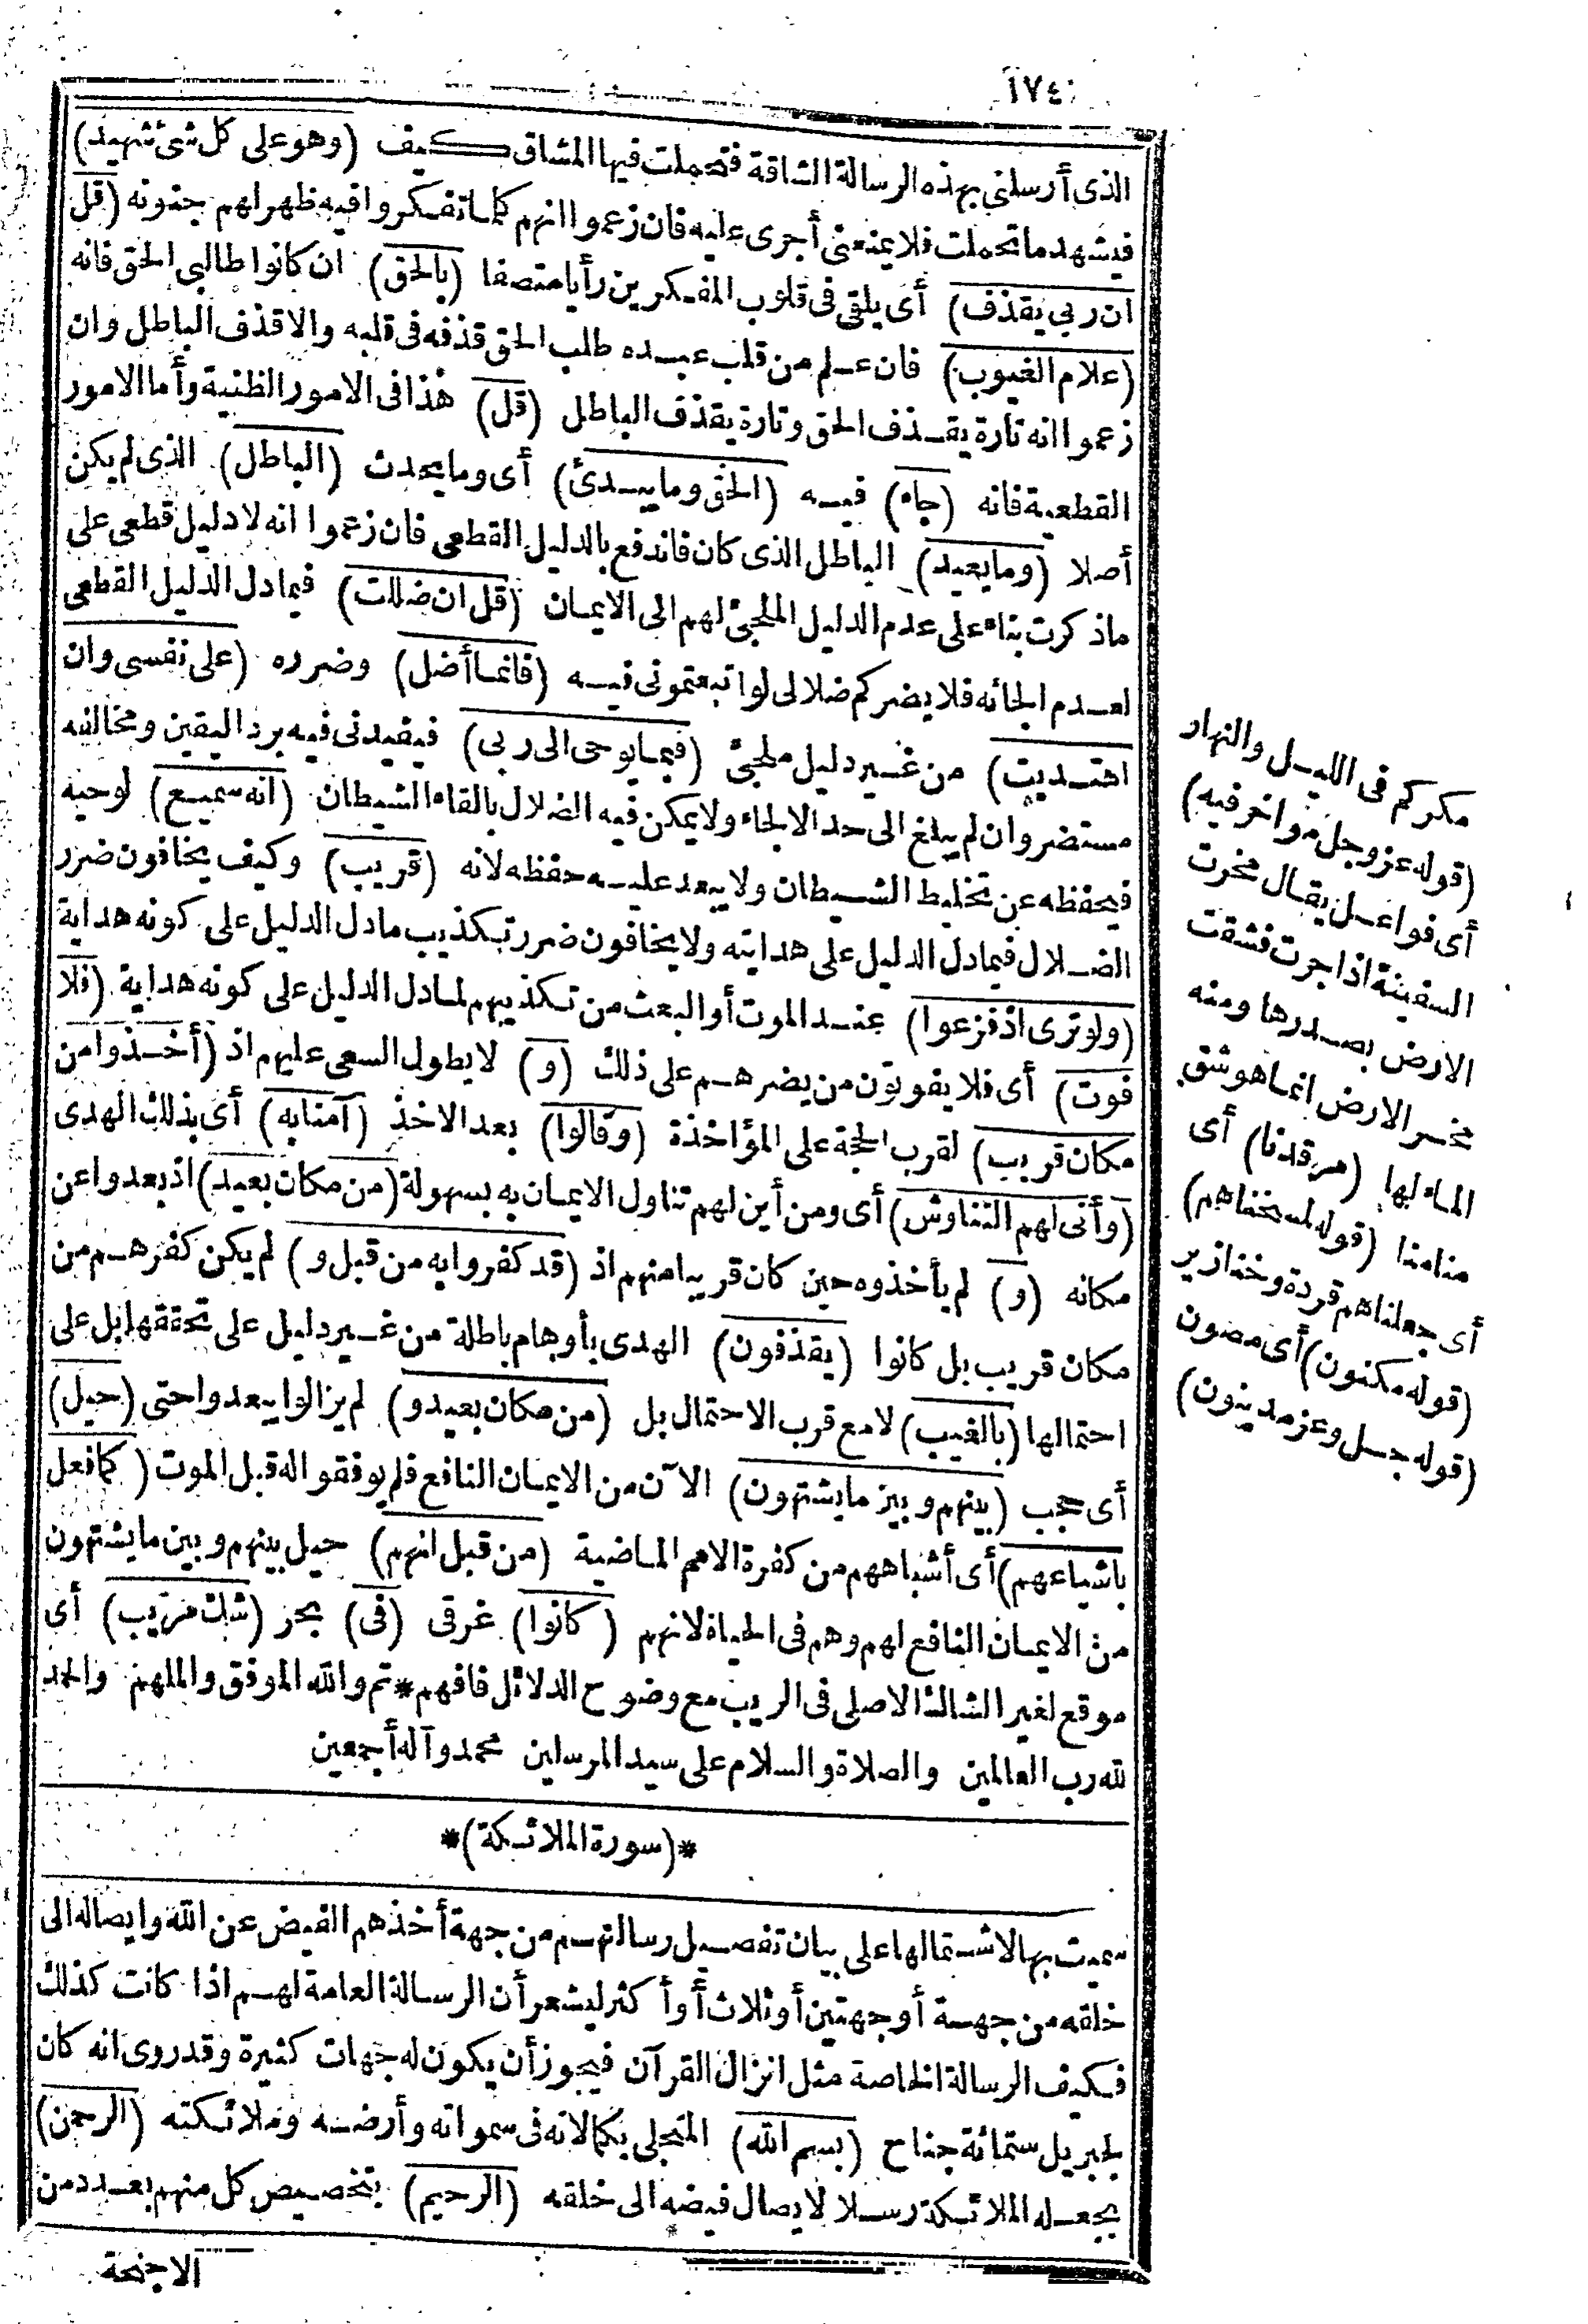 ١٧٤
الذى أرسلنى بهذه الرسالة الشاقة فتحملت فيها المشاق كيف (وهو على كل شئ شهيد)
فيشهد ما تحملت فلا يمنعنى أجرى عليه فان زعموا انهم كلما تفكروا فيه ظهر لهم جنونه (قل
ان ربي يقذف) أى يلقى فى قلوب المفكرين رأيا متصفا (بالحق) ان كانوا طالبى الحق فانه
(علام الغيوب) فان علم من قلب عبده طلب الحق قذفه فى قلبه والا قذف الباطل وان
زعموا انه تارة يقذف الحق وتارة يقذف الباطل (قل) هذا فى الامور الظنية وأما الامور
القطعية فانه (جاء) فيه (الحق وما يبدئ) أى وما يحدث (الباطل) الذى لم يكن
أصلا (وما يعيد) الباطل الذى كان فاندفع بالدليل القطعى فان زعموا انه لا دليل قطعى على
ما ذكرت بناء على عدم الدليل الملجئ لهم الى الايمان (قل ان ضللت) فيما دل الدليل القطعى
لعدم الجائه فلا يضركم ضلالى لو اتبعتمونى فيه (فانما أضل) وضرره (على نفسى وان
اهتديت) من غير دليل ملجئ (فبما يوحى الى ربى) فيقيدنى فيه برد اليقين ومخالفه
مستضر وان لم يبلغ الى حد الالجاء ولا يمكن فيه الضلال بالقاء الشيطان (انه سميع) لوحيه
فيحفظه عن تخليط الشيطان ولا يبعد عليه حفظه لانه (قريب) وكيف يخافون ضرر
الضلال فيما دل الدليل على هدايته ولا يخافون ضرر تكذيب ما دل الدليل على كونه هداية
(ولو ترى اذ فزعوا) عند الموت أو البعث من تكذيبهم لما دل الدليل على كونه هداية (فلا
فوت) أى فلا يفوتون من يضرهم على ذلك (و) لا يطول السعى عليهم اذ (أخذوا من
مكان قريب) لقرب الحجة على المؤاخذة (وقالوا) بعد الاخذ (آمنا به) أى بذلك الهدى
(وأنى لهم التناوش) أى ومن أين لهم تناول الايمان به بسهولة (من مكان بعيد) اذ بعدوا عن
مكانه (و) لم يأخذوه حين كان قريبا منهم اذ (قد كفروا به من قبل و) لم يكن كفرهم من
مكان قريب بل كانوا (يقذفون) الهدى بأوهام باطلة من غير دليل على تحققها بل على
احتمالها (بالغيب) لا مع قرب الاحتمال بل (من مكان بعيد و) لم يزالوا يبعدوا حتى (حيل)
أى حجب (بينهم وبين ما يشتهون) الآن من الايمان النافع فلم يوفقوا له قبل الموت (كما فعل
باشياعهم) أى أشباههم من كفرة الامم الماضية (من قبل انهم) حيل بينهم وبين ما يشتهون
من الايمان النافع لهم وهم فى الحياة لانهم (كانوا) غرقى (فى) بحر (شك مريب) أى
موقع لغير الشاك الاصلى فى الريب مع وضوح الدلائل فافهم * تم والله الموفق والملهم والحمد
لله رب العالمين والصلاة والسلام على سيد المرسلين محمد وآله أجمعين
*(سورة الملائكة)*
سميت بها لاشتمالها على بيان تفصيل رسالتهم من جهة أخذهم الفيض عن الله وايصاله الى
خلقه من جهة أو جهتين أو ثلاث أو أكثر ليشعر أن الرسالة العامة لهم اذا كانت كذلك
فكيف الرسالة الخاصة مثل انزال القرآن فيجوز أن يكون له جهات كثيرة وقد روى انه كان
لجبريل ستمائة جناح (بسم الله) المتجلى بكمالاته فى سمواته وأرضه وملائكته (الرحمن)
بجعله الملائكة رسلا لايصال فيضه الى خلقه (الرحيم) بتخصيص كل منهم بعدد من
الاجنحة
مكركم فى الليل والنهار
(قوله عز وجل مواخر فيه)
أى فواعل يقال مخرت
السفينة اذا جرت فشقت
الارض بصدرها ومنه
مخر الارض انما هو شق
الماء لها (مرقدنا) أى
منامنا (قوله لمسخناهم)
أى جعلناهم قردة وخنازير
(قوله مكنون) أى مصون
(قوله جل وعز مدينون)